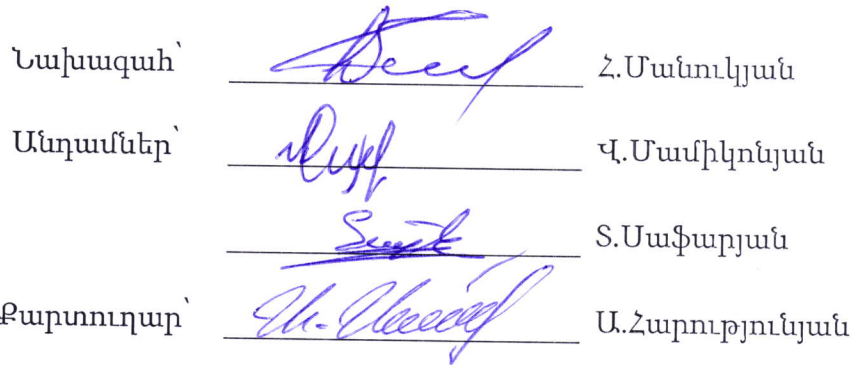 Նախագահ՝ Հ.Մանուկյան
Անդամներ՝ Վ.Մամիկոնյան
Տ.Սաֆարյան
Քարտուղար՝ Ա.Հարությունյան